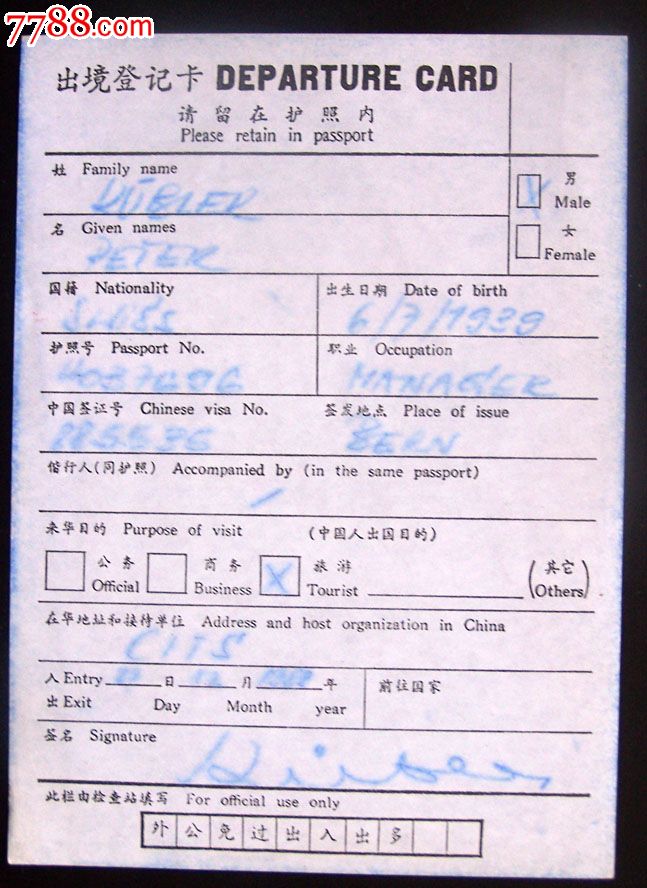 7788.com
出境登记卡 DEPARTURE CARD
请留在护照内
Please retain in passport
姓 Family name
男
Male
名 Given names
PETER
女
Female
国籍 Nationality
SWISS
出生日期 Date of birth
6/7/1939
护照号 Passport No.
职业 Occupation
MANAGER
中国签证号 Chinese visa No.
签发地点 Place of issue
BERN
偕行人(同护照) Accompanied by (in the same passport)
来华目的 Purpose of visit (中国人出国目的)
公务 Official
商务 Business
X 旅游 Tourist
(其它 Others)
在华地址和接待单位 Address and host organization in China
CITS
入 Entry 日 月 年
出 Exit Day Month year
前往国家
签名 Signature
此栏由检查站填写 For official use only
外 公 免 过 出 入 出 多